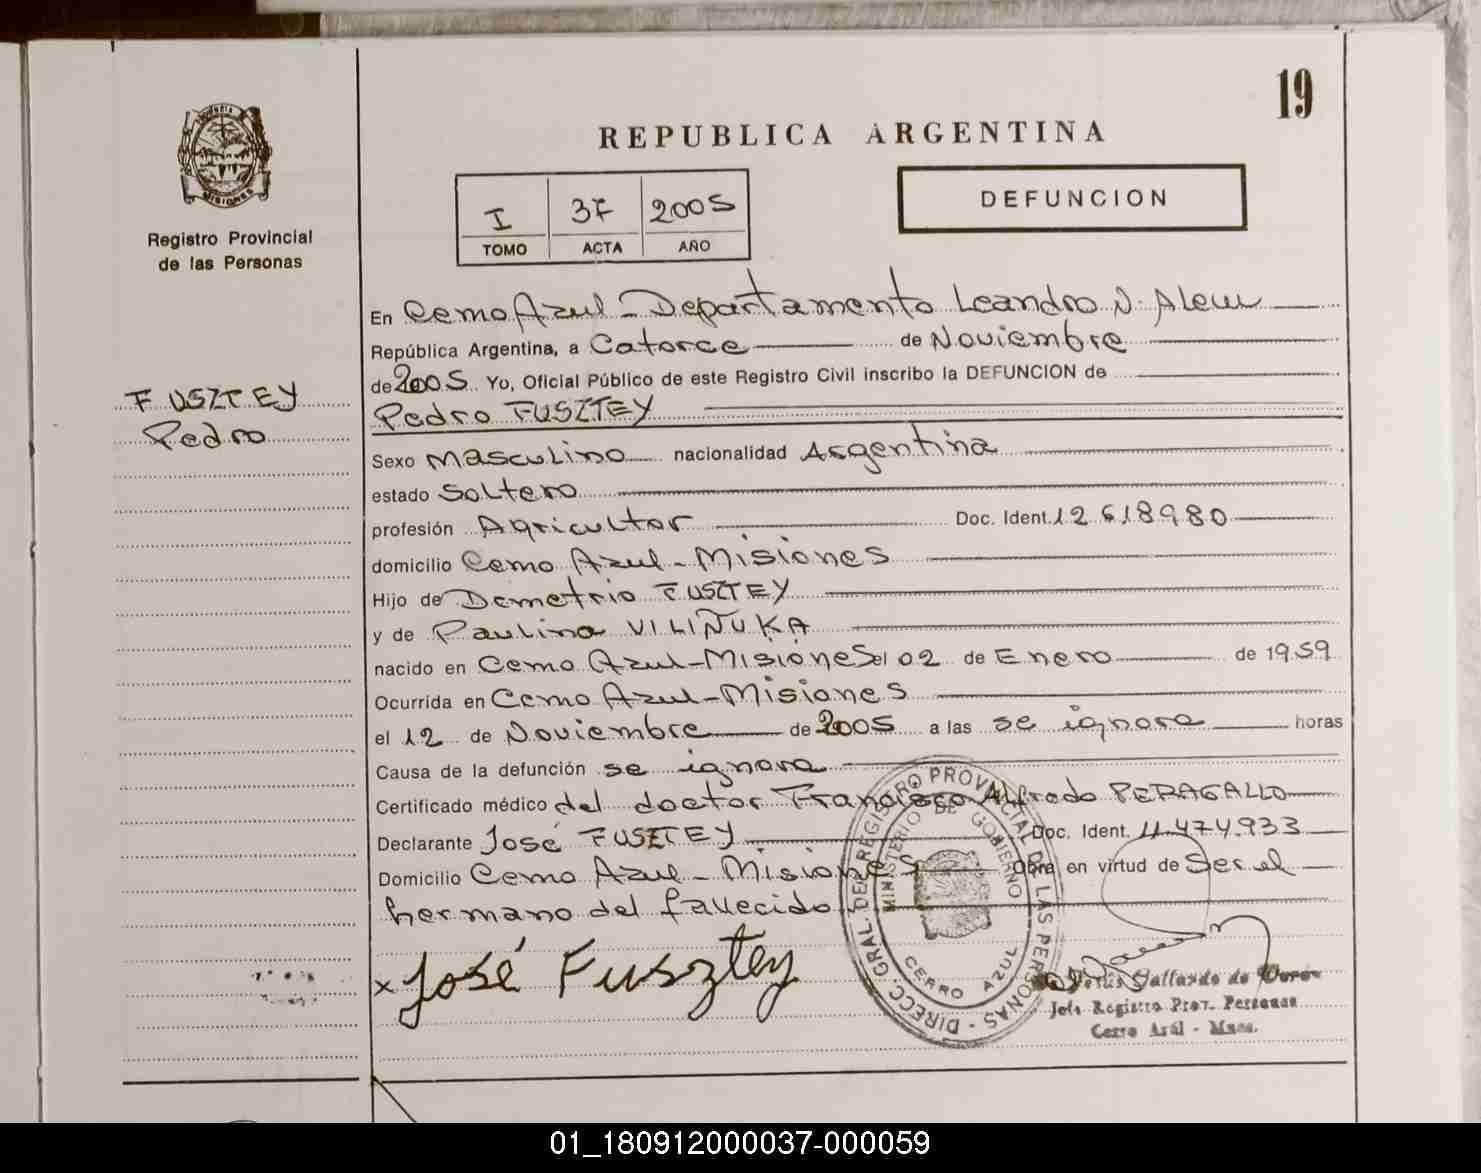 19
REPUBLICA ARGENTINA
I 37 2005
TOMO ACTA AÑO
DEFUNCION
MISIONES
Registro Provincial
de las Personas
FUSZTEY
Pedro
En Cerro Azul - Departamento Leandro N. Alem
República Argentina, a Catorce de Noviembre
de 2005 Yo, Oficial Público de este Registro Civil inscribo la DEFUNCION de
Pedro FUSZTEY
Sexo Masculino nacionalidad Argentina
estado Soltero
profesión Agricultor Doc. Ident. 12.618.980
domicilio Cerro Azul - Misiones
Hijo de Demetrio FUSZTEY
y de Paulina VILIÑUKA
nacido en Cerro Azul - Misiones el 02 de Enero de 1959
Ocurrida en Cerro Azul - Misiones
el 12 de Noviembre de 2005 a las se ignora horas
Causa de la defunción se ignora
Certificado médico del doctor Francisco Alfredo PERAGALLO
Declarante José FUSZTEY Doc. Ident. 11.474.933
Domicilio Cerro Azul - Misiones Obra en virtud de Ser el
hermano del fallecido
x José Fusztey
DIRECC. GRAL. DEL REGISTRO PROVINCIAL DE LAS PERSONAS
MINISTERIO DE GOBIERNO
CERRO AZUL
Gallardo de
Jefe Registro Prov. Personas
Cerro Azul - Mnes.
01_180912000037-000059